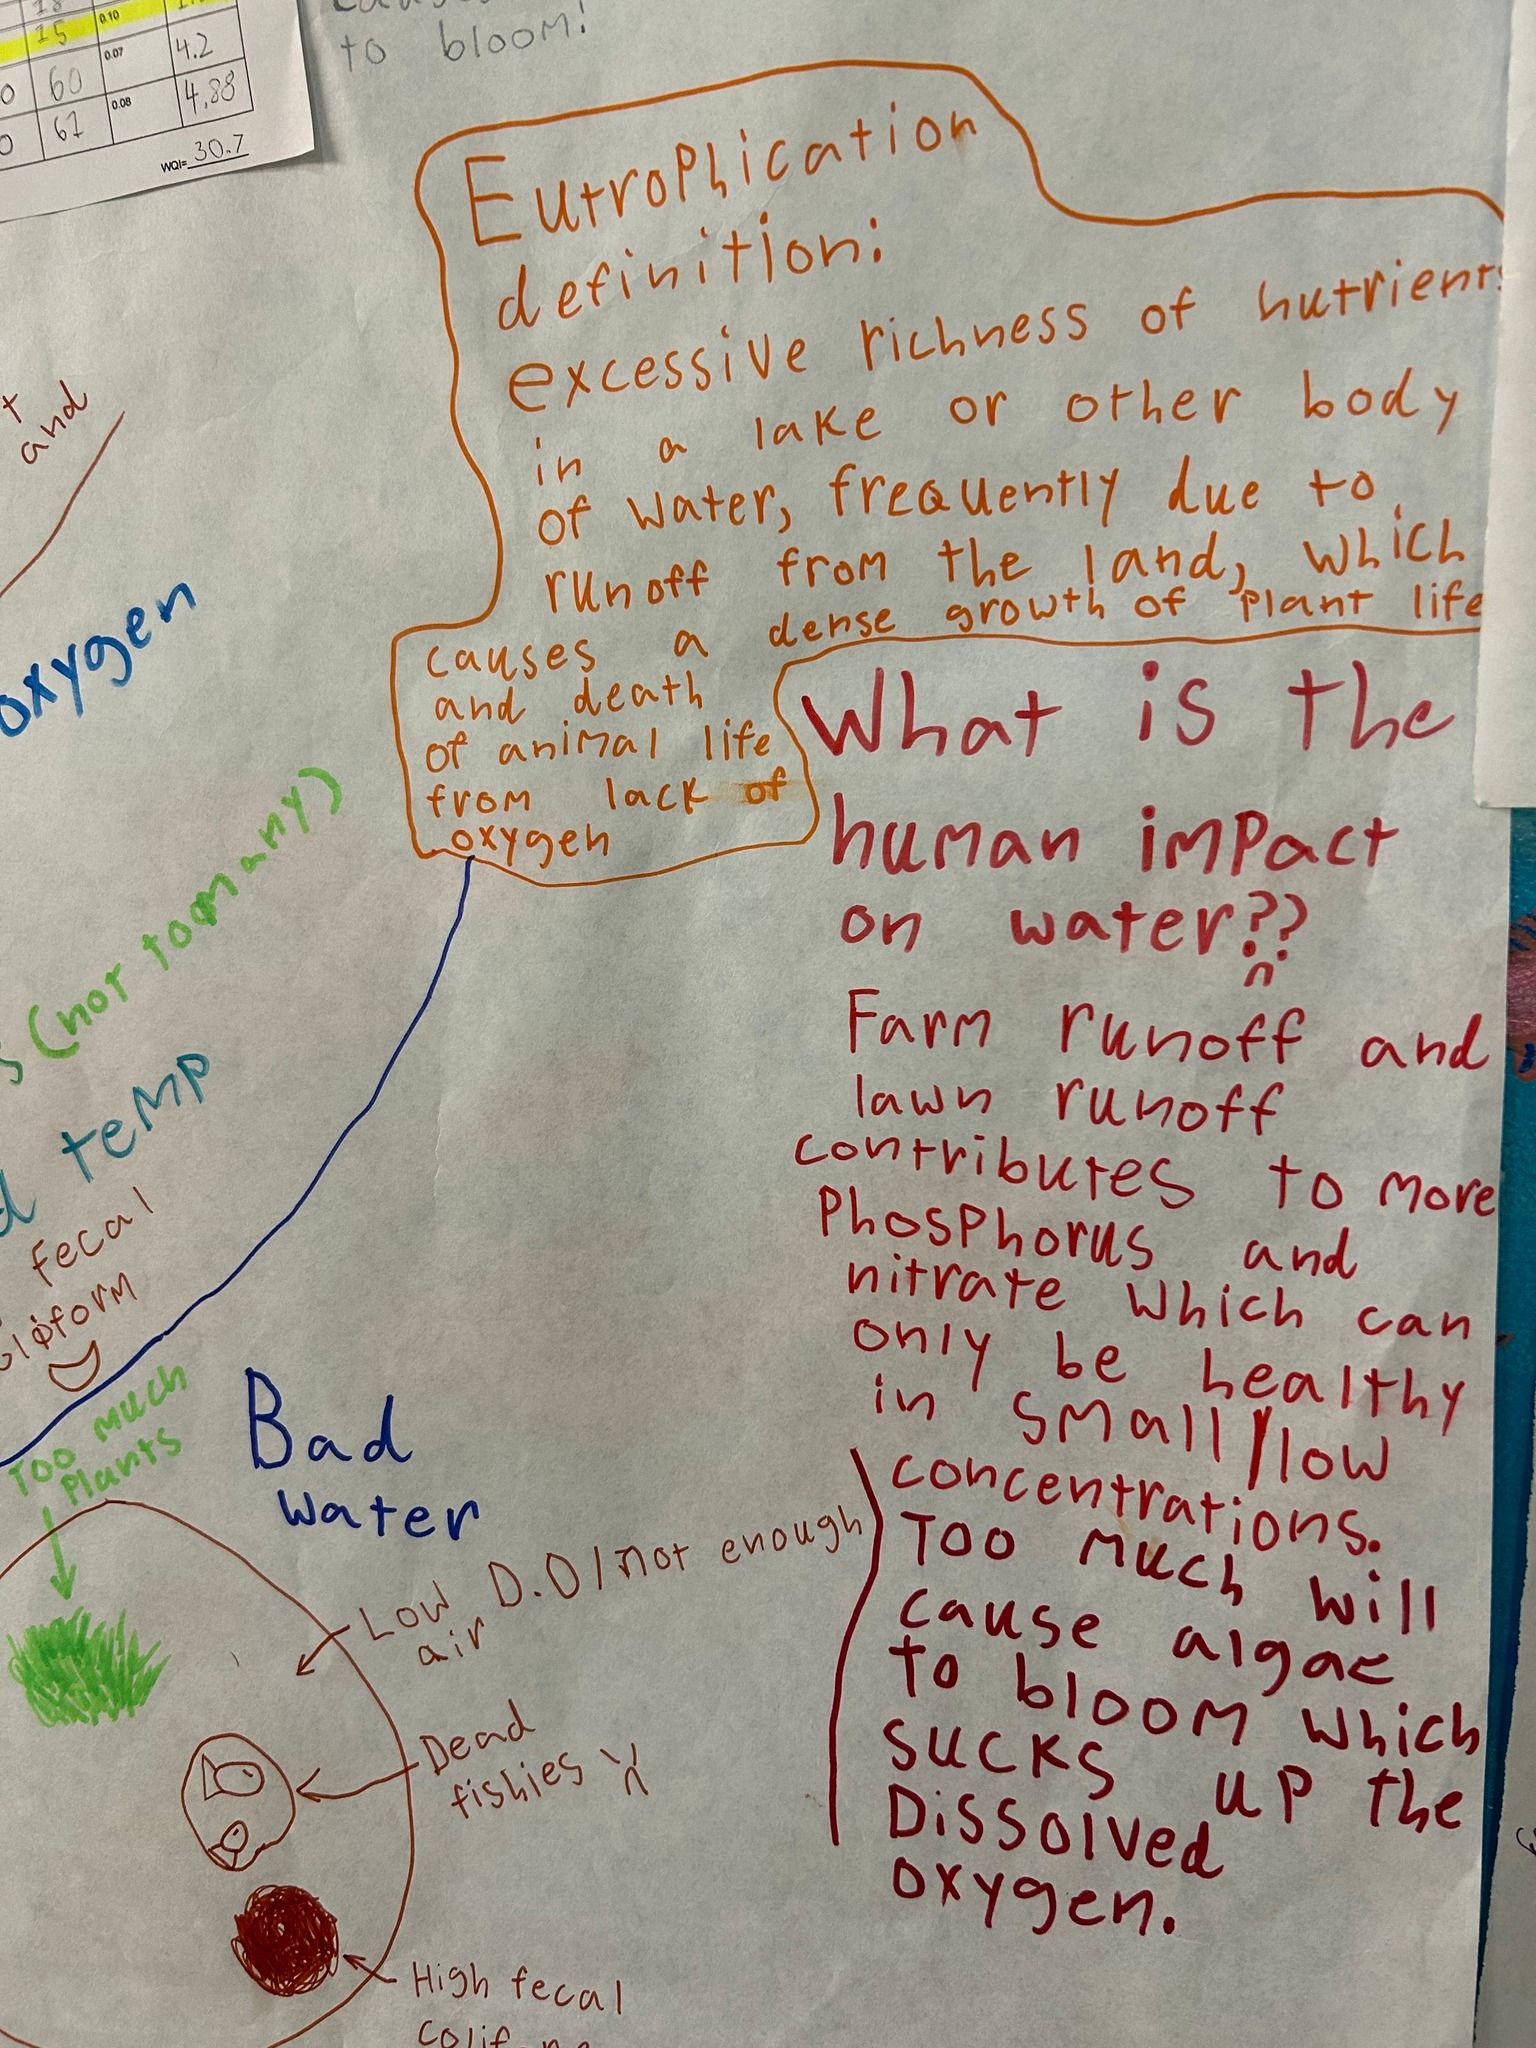 18
15
0.10
60
0.07
4.2
67
0.08
4.88
WQI= 30.7
to bloom!
Eutrophication
definition:
excessive richness of nutrients
in a lake or other body
of water, frequently due to
runoff from the land, which
causes a dense growth of plant life
and death
of animal life
from lack of
oxygen
and
oxygen
(not too many)
temp
fecal
What is the
human impact
on water??
Farm runoff and
lawn runoff
contributes to more
Phosphorus and
nitrate which can
only be healthy
in small/low
concentrations.
Too much will
cause algae
to bloom which
sucks up the
Dissolved
oxygen.
Too much
plants
Bad
water
Low D.O/not enough
air
Dead
fishies
High fecal